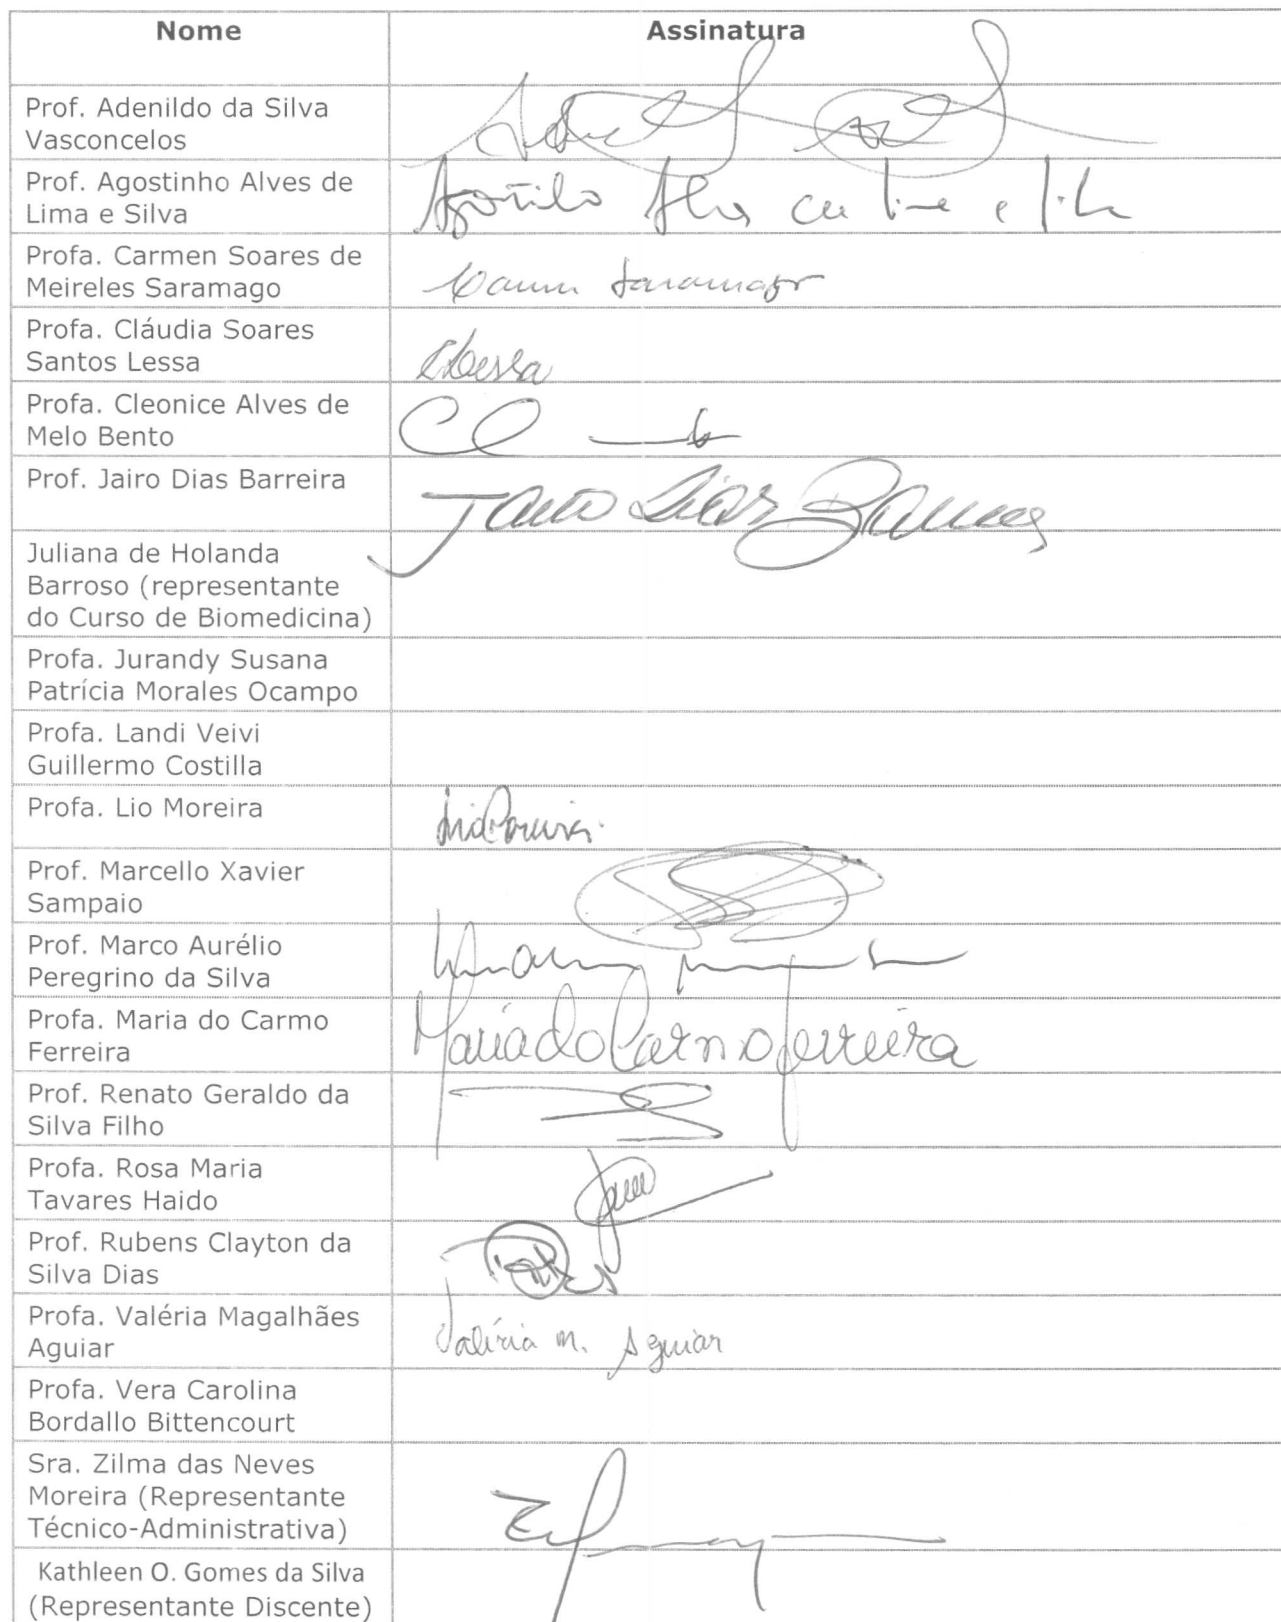 Nome Assinatura
Prof. Adenildo da Silva
Vasconcelos
Prof. Agostinho Alves de
Lima e Silva
Profa. Carmen Soares de
Meireles Saramago
Carmen Saramago
Profa. Cláudia Soares
Santos Lessa
CLessa
Profa. Cleonice Alves de
Melo Bento
Prof. Jairo Dias Barreira
Jairo Dias Barreira
Juliana de Holanda
Barroso (representante
do Curso de Biomedicina)
Profa. Jurandy Susana
Patrícia Morales Ocampo
Profa. Landi Veivi
Guillermo Costilla
Profa. Lio Moreira
Lio Moreira
Prof. Marcello Xavier
Sampaio
Prof. Marco Aurélio
Peregrino da Silva
Profa. Maria do Carmo
Ferreira
Maria do Carmo Ferreira
Prof. Renato Geraldo da
Silva Filho
Profa. Rosa Maria
Tavares Haido
Prof. Rubens Clayton da
Silva Dias
Profa. Valéria Magalhães
Aguiar
Valéria M. Aguiar
Profa. Vera Carolina
Bordallo Bittencourt
Sra. Zilma das Neves
Moreira (Representante
Técnico-Administrativa)
Kathleen O. Gomes da Silva
(Representante Discente)